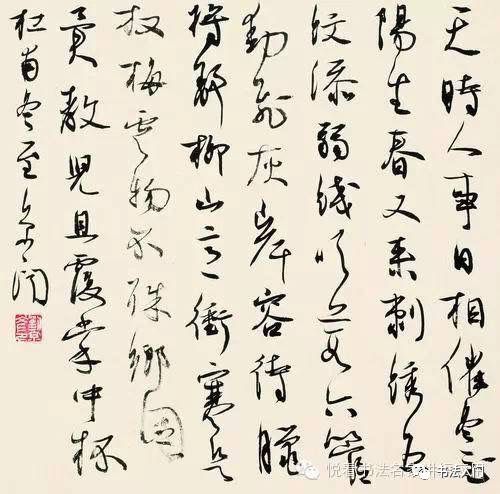 天時人事日相催冬至
陽生春又来刺繡五
紋添弱綫吹葭六管
動飛灰岸容待臘
將舒柳山意衝寒欲
放梅雲物不殊鄉國
異教兒且覆掌中杯
杜甫冬至
悦看书法名家
书法入门